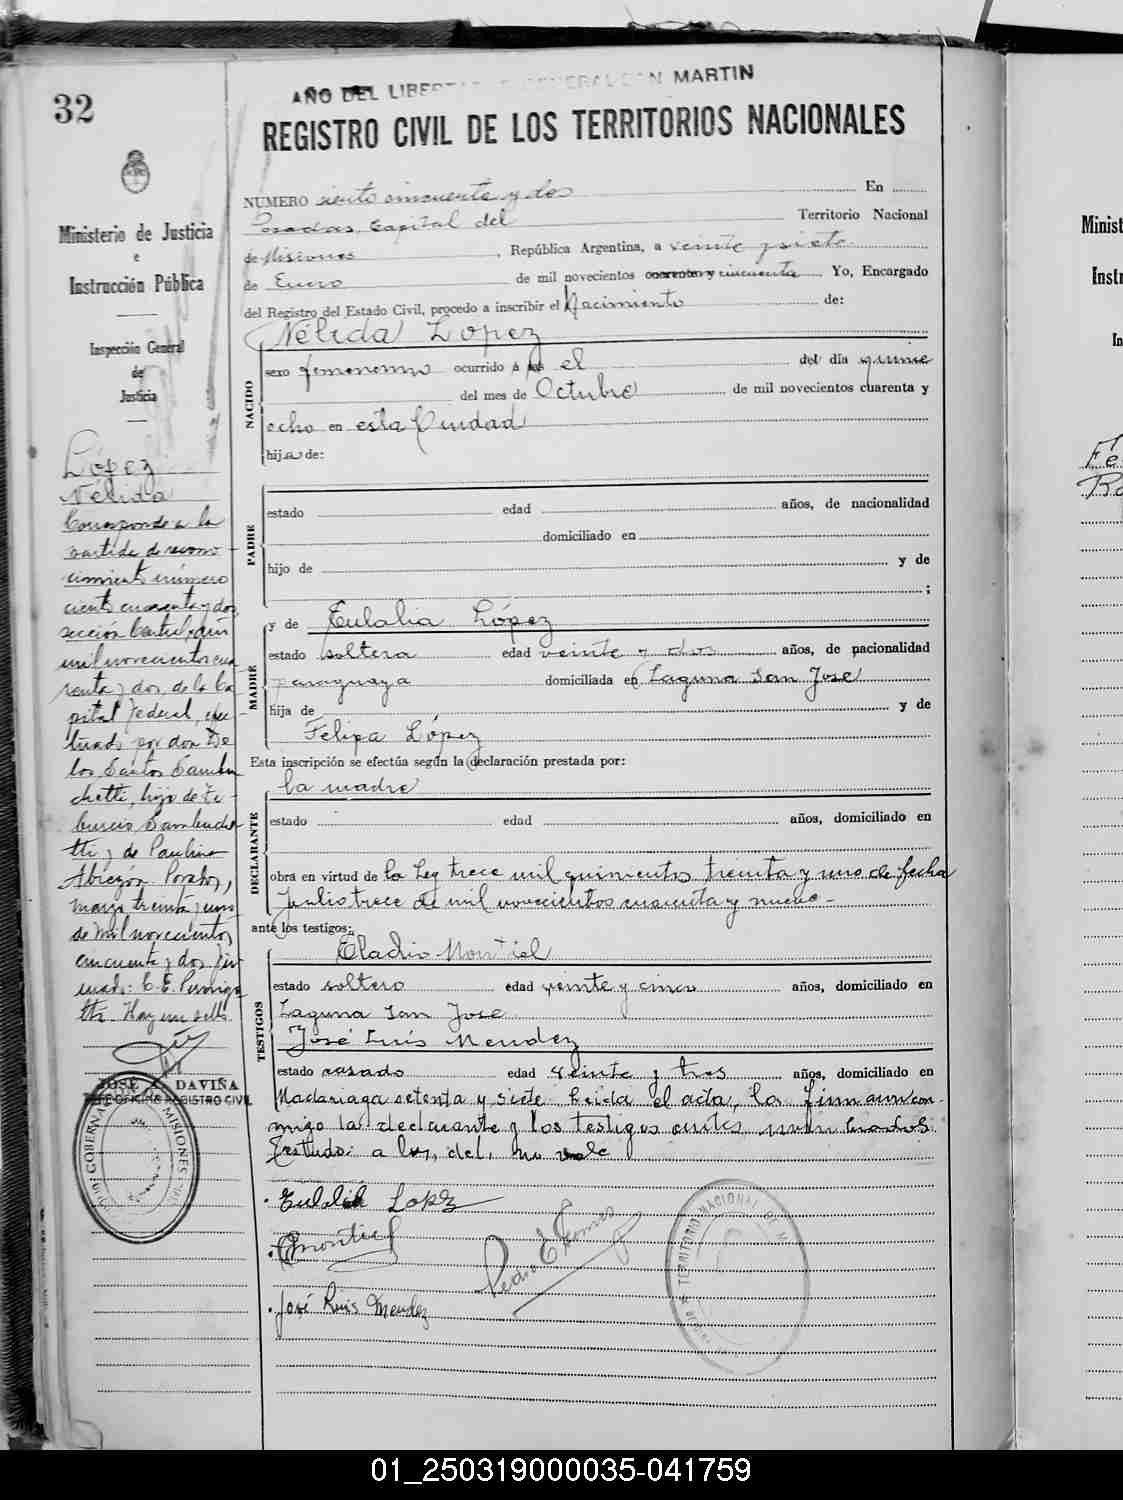 AÑO DEL LIBERTADOR GENERAL SAN MARTIN
32
REGISTRO CIVIL DE LOS TERRITORIOS NACIONALES
Ministerio de Justicia
e
Instrucción Pública
Inspección General
de
Justicia
López
Nélida
Corresponde a la
partida de recono-
cimiento número
ciento cuarenta y dos
sección Central, año
mil novecientos cua
renta y dos, de la Ca
pital Federal, efec-
tuado por don De
los Santos Sambu
chetti, hijo de Ti-
burcio Sambuche-
tti y de Paulina
Posadas,
marzo treinta y uno
de mil novecientos
cincuenta y dos. Fir
mado: C. E.
Hay un sello.
JOSE A. DAVIÑA
JEFE OFICINA REGISTRO CIVIL
GOBERNACION DE MISIONES
NUMERO ciento cincuenta y dos En
Posadas, Capital del Territorio Nacional
de Misiones, República Argentina, a veinte y siete
de Enero de mil novecientos cuarenta y cincuenta Yo, Encargado
del Registro del Estado Civil, procedo a inscribir el Nacimiento de:
Nélida López
NACIDO
sexo femenino ocurrido á las el del día quince
del mes de Octubre de mil novecientos cuarenta y
ocho en esta Ciudad
hija de:
PADRE
estado edad años, de nacionalidad
domiciliado en
hijo de y de
;
MADRE
y de Eulalia López
estado soltera edad veinte y dos años, de nacionalidad
paraguaya domiciliada en Laguna San José
hija de y de
Felipa López
Esta inscripción se efectúa según la declaración prestada por:
DECLARANTE
la madre
estado edad años, domiciliado en
obra en virtud de la Ley trece mil quinientos treinta y uno de fecha
Julio trece de mil novecientos cuarenta y nueve-
ante los testigos:
TESTIGOS
Eladio Montiel
estado soltero edad veinte y cinco años, domiciliado en
Laguna San José
José Luís Mendez
estado casado edad veinte y tres años, domiciliado en
Madariaga setenta y siete. Leída el acta, la firman con-
migo la declarante y los testigos antes nombrados.
Testado: a las, del, no vale
Eulalia Lopez
EMontiel
Pedro E Thomas
José Luis Mendez
TERRITORIO NACIONAL DE M
01_250319000035-041759